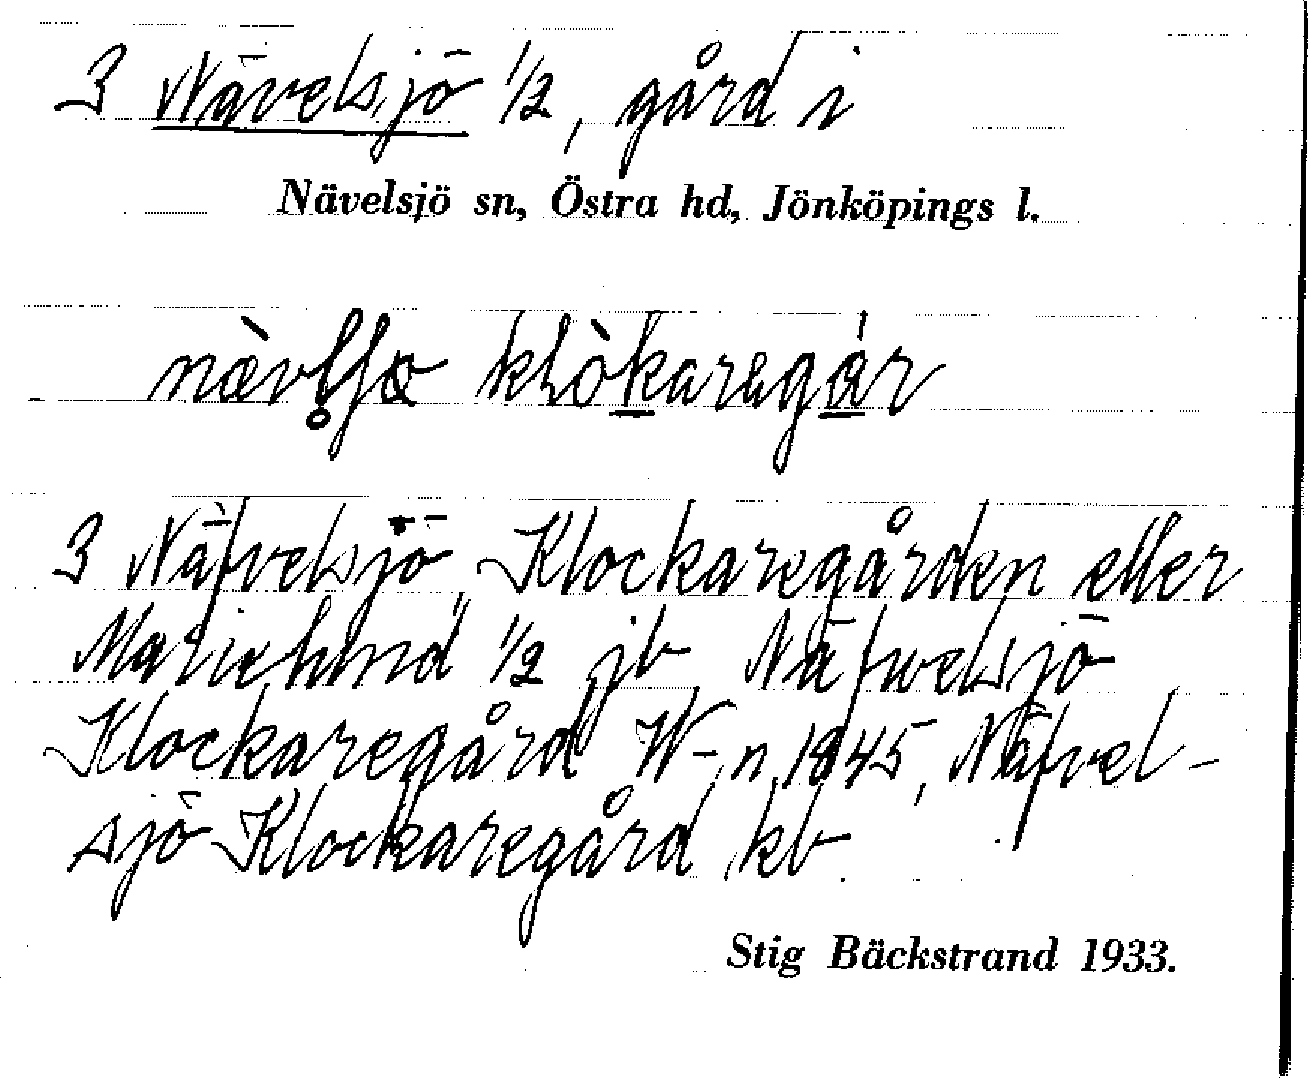 3 Nävelsjö 1/2, gård i
Nävelsjö sn, Östra hd, Jönköpings l.
klòkaregår
3 Näfvelsjö, Klockaregården eller
Marielund 1/2 jb, Näfwelsjö
Klockaregård W-n 1845, Näfvel-
sjö Klockaregård kb
Stig Bäckstrand 1933.